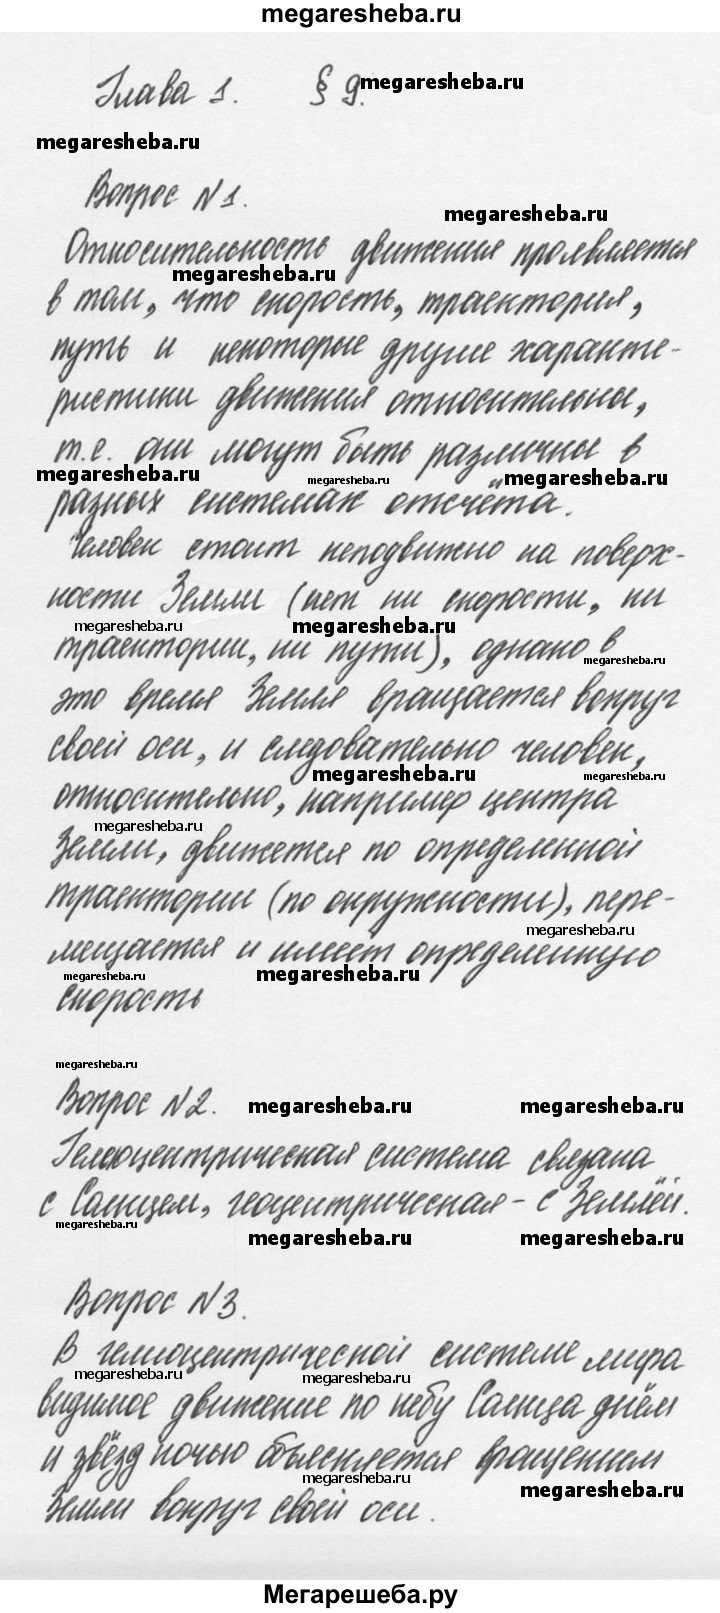 megaresheba.ru
Глава 1. § 9.
megaresheba.ru
megaresheba.ru
Вопрос №1.
megaresheba.ru
Относительность движения проявляется
megaresheba.ru
в том, что скорость, траектория,
путь и некоторые другие характе-
ристики движения относительны,
т.е. они могут быть различны в
megaresheba.ru megaresheba.ru megaresheba.ru
разных системах отсчёта.
Человек стоит неподвижно на поверх-
ности Земли (нет ни скорости, ни
megaresheba.ru megaresheba.ru
траектории, ни пути), однако в
megaresheba.ru
это время Земля вращается вокруг
своей оси, и следовательно человек,
megaresheba.ru megaresheba.ru
относительно, например центра
megaresheba.ru
Земли, движется по определенной
траектории (по окружности), пере-
megaresheba.ru
мещается и имеет определенную
megaresheba.ru megaresheba.ru
скорость
megaresheba.ru
Вопрос №2.
megaresheba.ru megaresheba.ru
Гелиоцентрическая система связана
с Солнцем, геоцентрическая - с Землёй.
megaresheba.ru
megaresheba.ru megaresheba.ru
Вопрос №3.
В гелиоцентрической системе мира
megaresheba.ru megaresheba.ru
видимое движение по небу Солнца днём
и звёзд ночью объясняется вращением
megaresheba.ru megaresheba.ru
Земли вокруг своей оси.
Мегарешеба.ру